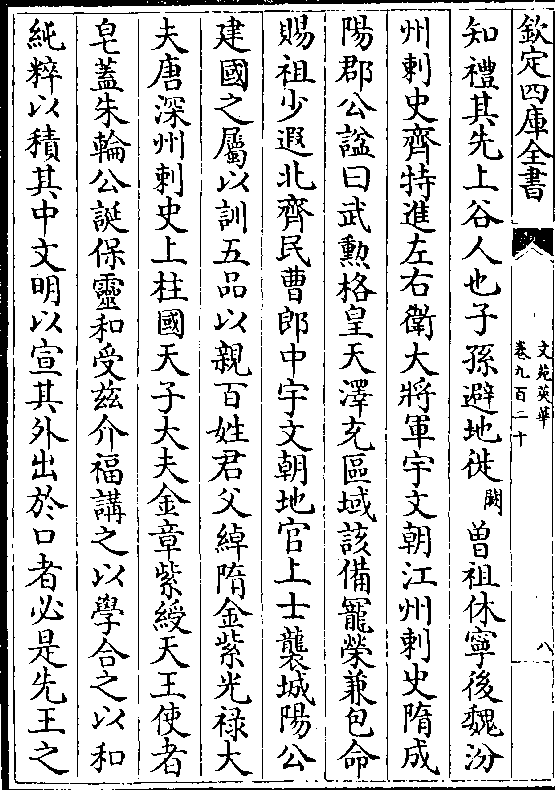 欽定四庫全書
文苑英華
卷九百二十
八
知禮其先上谷人也子孫避地徙闕曽祖休寧後魏汾
州刺史齊特進左右衛大將軍宇文朝江州刺史隋成
陽郡公諡曰武勲格皇天澤充區域該備寵榮兼包命
賜祖少遐北齊民曹郎中宇文朝地官上士襲城陽公
建國之屬以訓五品以親百姓君父綽隋金紫光禄大
夫唐深州刺史上柱國天子大夫金章紫綬天王使者
皂蓋朱輪公誕保靈和受兹介福講之以學合之以和
純粹以積其中文明以宣其外出於口者必是先王之